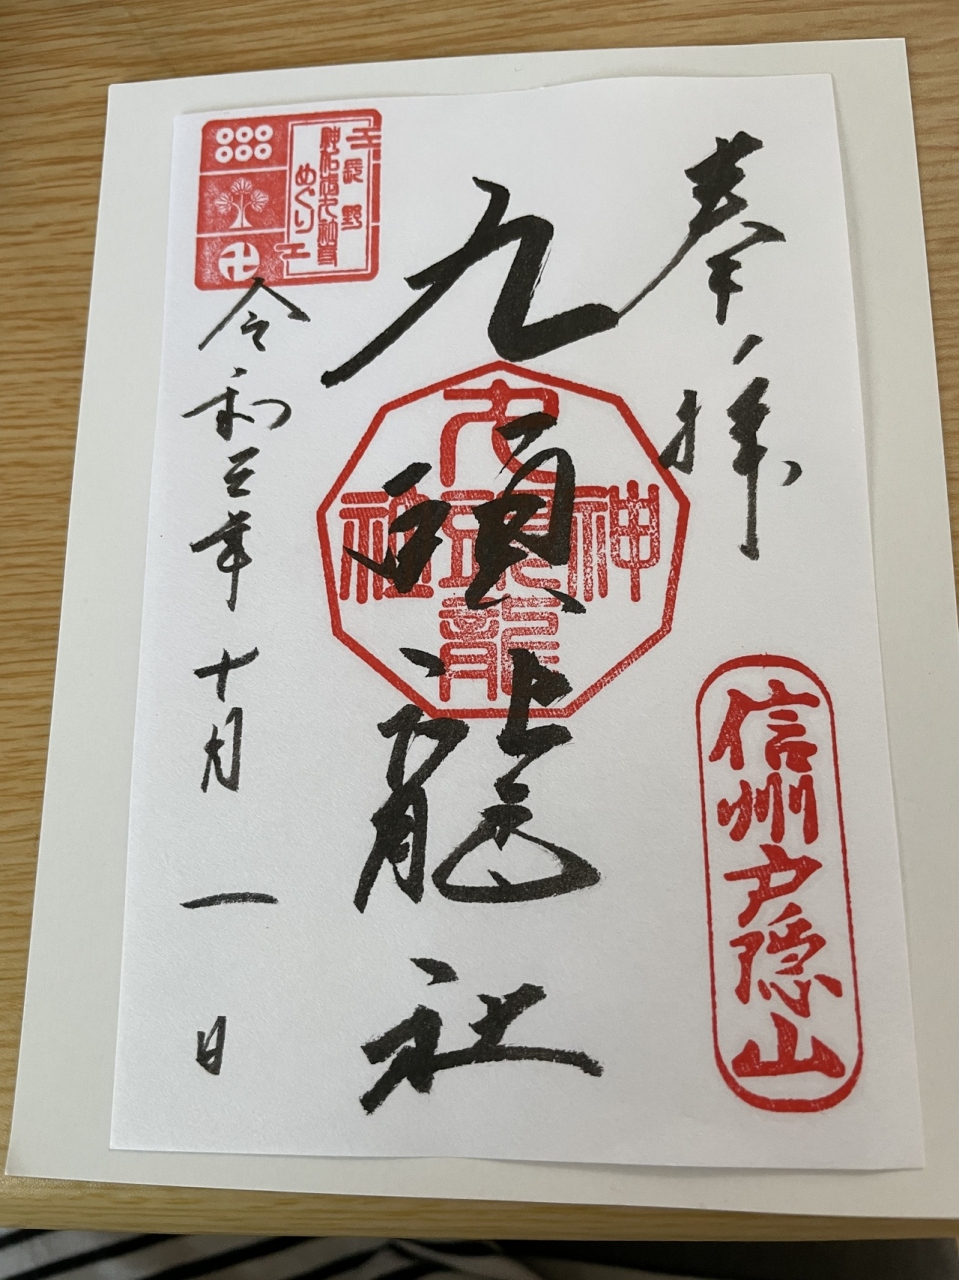 奉拝
信州戸隠山
九頭龍社
九頭龍神社
長野
めぐり
令和三年
十月
一
日